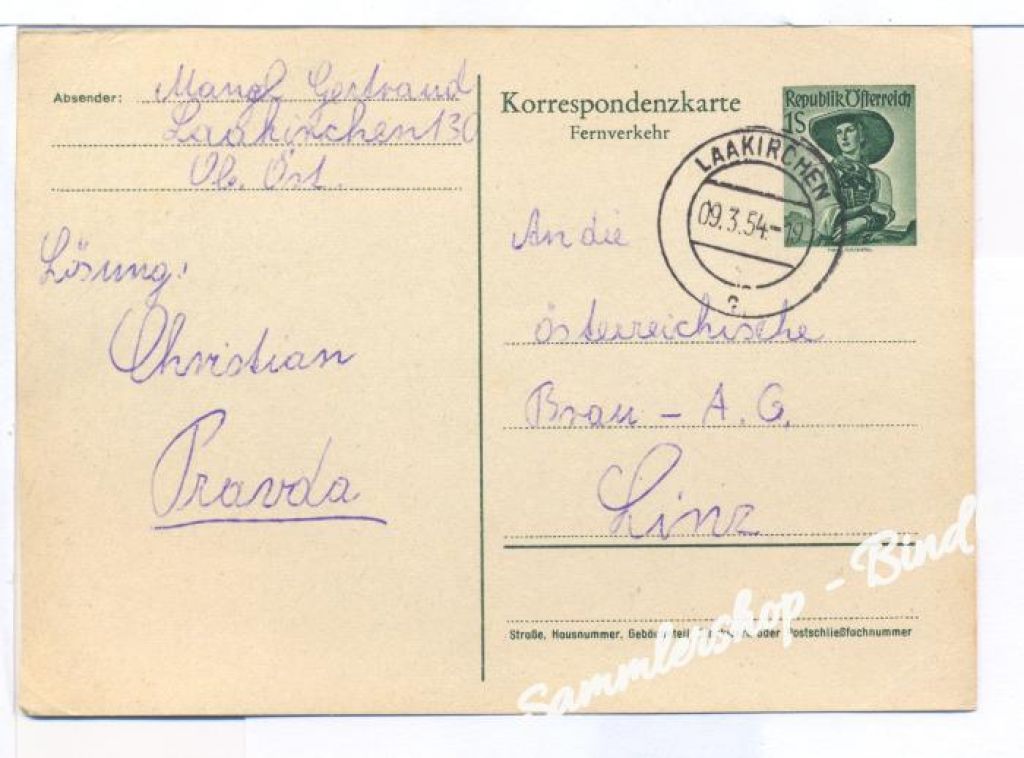 Absender: Mangl Gertraud
Laakirchen 130
Ob. Öst.
Lösung:
Christian
Pravda
Korrespondenzkarte
Fernverkehr
Republik Österreich
1S
LAAKIRCHEN
09.3.54.-19
a
An die
Österreichische
Brau - A. G.
Linz
Straße, Hausnummer, Gebäudeteil oder Postschließfachnummer
Sammlershop - Bind